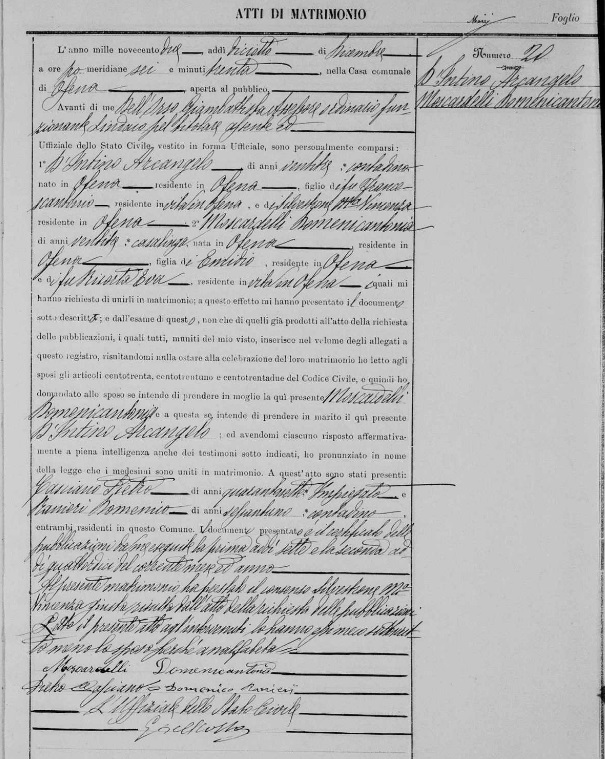 ATTI DI MATRIMONIO
Foglio
L'anno mille novecento due, addì diciotto di Dicembre
a ore po meridiane sei e minuti trenta, nella Casa comunale
di Ofena aperta al pubblico.
Avanti di me Dell'Orso Giambattista Assessore ordinario fun
zionante Sindaco pel titolare assente ed
Uffiziale dello Stato Civile, vestito in forma Ufficiale, sono personalmente comparsi:
1° D'Intino Arcangelo, di anni ventitre contadino
nato in Ofena, residente in Ofena, figlio di fu France-
scantonio, residente in vita in Ofena, e di Silvestrone Ma Vincenza
residente in Ofena 2° Miscardelli Domenicantonia
di anni casalinga nata in Ofena, residente in
Ofena, figlia di Emidio, residente in Ofena
e di fu Eva, residente in vita in Ofena i quali mi
hanno richiesto di unirli in matrimonio; a questo effetto mi hanno presentato il documento
sotto descritto; e dall'esame di questo, non che di quelli già prodotti all'atto della richiesta
delle pubblicazioni, i quali tutti, muniti del mio visto, inserisco nel volume degli allegati a
questo registro, risultandomi nulla ostare alla celebrazione del loro matrimonio ho letto agli
sposi gli articoli centotrenta, centotrentuno e centotrentadue del Codice Civile, e quindi ho
domandato allo sposo se intende di prendere in moglie la quì presente Miscardelli
Domenicantonia e a questa se intende di prendere in marito il quì presente
D'Intino Arcangelo; ed avendomi ciascuno risposto affermativa-
mente a piena intelligenza anche dei testimoni sotto indicati, ho pronunziato in nome
della legge che i medesimi sono uniti in matrimonio. A quest'atto sono stati presenti:
Casciano Pietro di anni Impiegato e
Ranieri Domenico di anni contadino
entrambi residenti in questo Comune. Il documento presentato è il certificato delle
pubblicazioni da me eseguite la prima addì sette e la seconda ad
di quattordici del corrente mese ed anno
Al presente matrimonio ha prestato il consenso Silvestrone Ma
Vincenza giusta risulta dall'atto della richiesta delle pubblicazioni
Letto il presente atto agl'intervenuti lo hanno con meco sottoscrit
to meno lo sposo perché analfabeta
Moscardelli Domenicantonia
Pietro Casciano Domenico Ranieri
L'Uffiziale dello Stato Civile
Numero 20
D'Intino Arcangelo
Moscardelli Domenicantonia